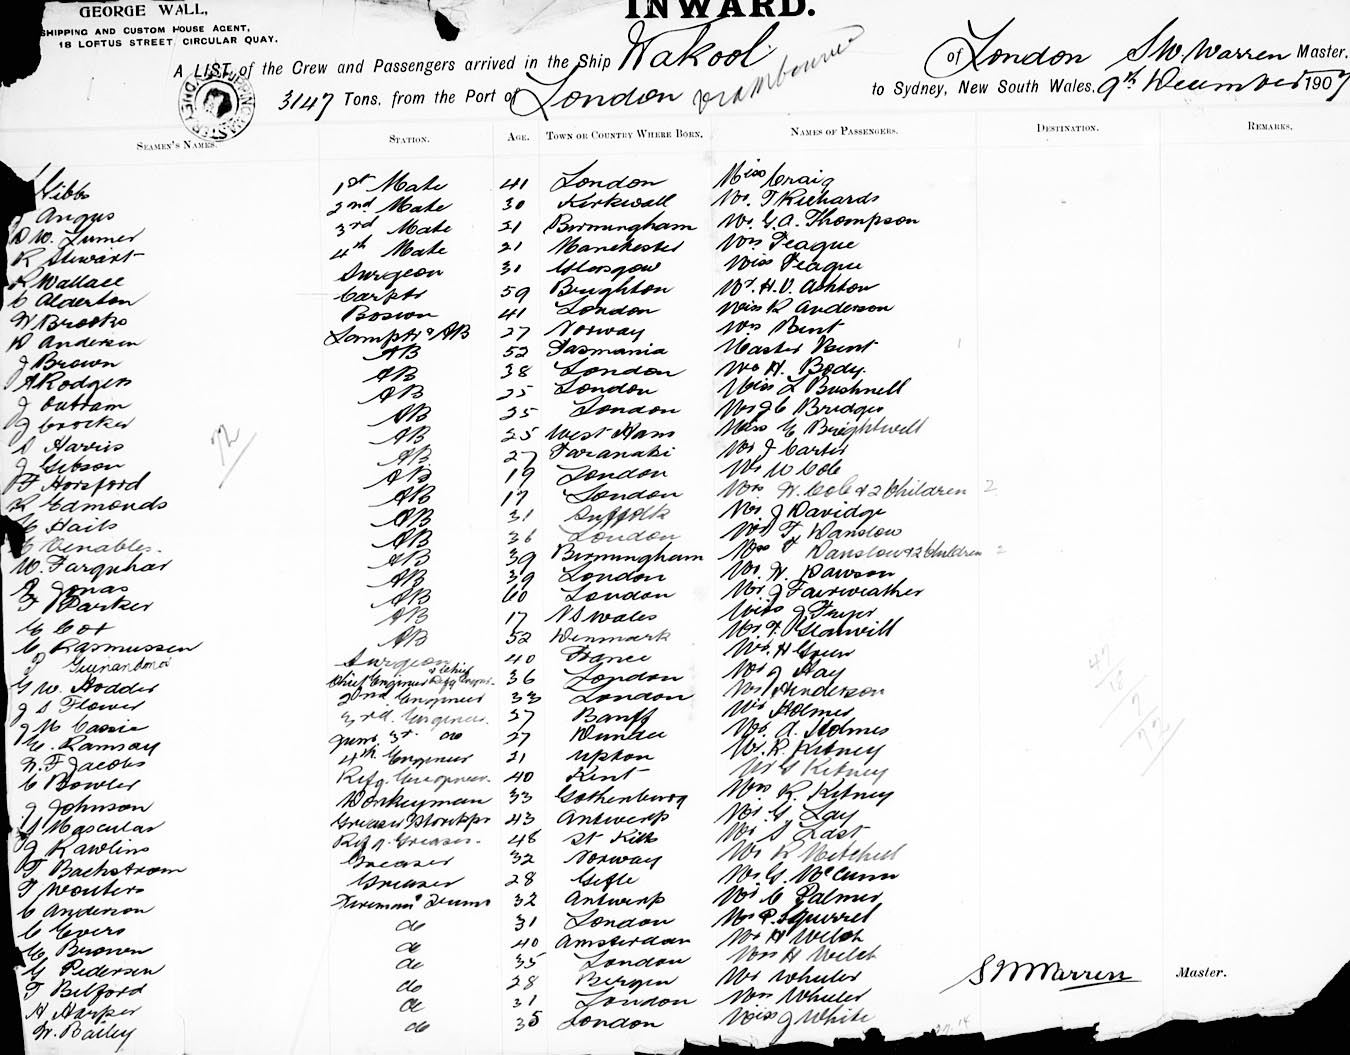 GEORGE WALL,
SHIPPING AND CUSTOM HOUSE AGENT,
18 LOFTUS STREET CIRCULAR QUAY.
INWARD.
A LIST of the Crew and Passengers arrived in the Ship Wakool of London S W. Warren Master.
3147 Tons, from the Port of London via Melbourne to Sydney, New South Wales, 9th December 1907
SEAMEN'S NAMES. STATION. AGE. TOWN OR COUNTRY WHERE BORN. NAMES OF PASSENGERS. DESTINATION. REMARKS.
Hibbs 1st Mate 41 London Miss Craig
Angus 2nd Mate 30 Kirkwall Mr. T Richards
W. Turner 3rd Mate 21 Birmingham Mr. G. A. Thompson
R Stewart 4th Mate 21 Manchester Mrs Teague
R Wallace Surgeon 31 Glasgow Miss Teague
C Alderton Carptr 59 Brighton Mr. H. V. Ashton
W Brooks Bosun 41 London Miss R Anderson
Andersen Lamptr & AB 27 Norway Mrs Bent
J Brown AB 52 Tasmania Master Bent
A Rodgers AB 38 London Mr H. Body.
J Outram AB 25 London Miss L Bushnell
J Crocker AB 25 London Mr J C Bridges
S Harris AB 25 West Ham Miss E Brightwell
J Gibson AB 27 Taranaki Mr J Carter
F Horsford AB 19 London Mr W Cole
R Edmonds AB 17 London Mrs W. Cole & 2 Children 2
C Hails AB 31 Suffolk Mr J Davidge
C Venables. AB 36 London Mr T Danslow
W. Farquhar AB 39 Birmingham Mrs T Danslow & 2 Children 2
Jonas AB 39 London Mr. W. Dawson
F Parker AB 60 London Mr J Fairweather
C Cox AB 17 N S Wales Miss J Fryer
C Rasmussen AB 52 Denmark Mr. F. Glanvill
Surgeon 40 France Mr. H Green
G W. Hodder Chief Engineer & Chief Refg Engnr. 36 London Mr J Hay
J S Flower 2nd Engineer 33 London Mr Henderson
J M Cassie 3rd. Engineer. 37 Banff Mr Holmes
G. Ramsay Junr. 3rd do 27 Dundee Mr. A. Holmes
W. F Jacobs 4th Engineer 21 Upton Mr. R Kitney
C Bowler Refg. Engineer. 40 Kent Mr G Kitney
J Johnson Donkeyman 33 Gothenburg Mrs R. Kitney
Mascular Greaser Storekpr 43 Antwerp Mr. G. Lay
J Rawlins Refg. Greaser. 48 St Kitts Mr S Last
T Backstrom Greaser 32 Norway Mr R Mitchell
T Wouters Greaser 28 Gefle Mr. G. McCunn
C Anderson Fireman & Trimr 32 Antwerp Mr C Palmer
C Evers do 31 London Mr P. Squirrel
C Brown do 40 Amsterdam Mr H Welch
G Pedersen do 35 London Mrs H Welch
T Belford do 28 Bergen Mr Wheeler
H Harper do 31 London Mrs Wheeler
W. Bailey do 35 London Miss J White
72
47
18
7
72
S W Warren Master.